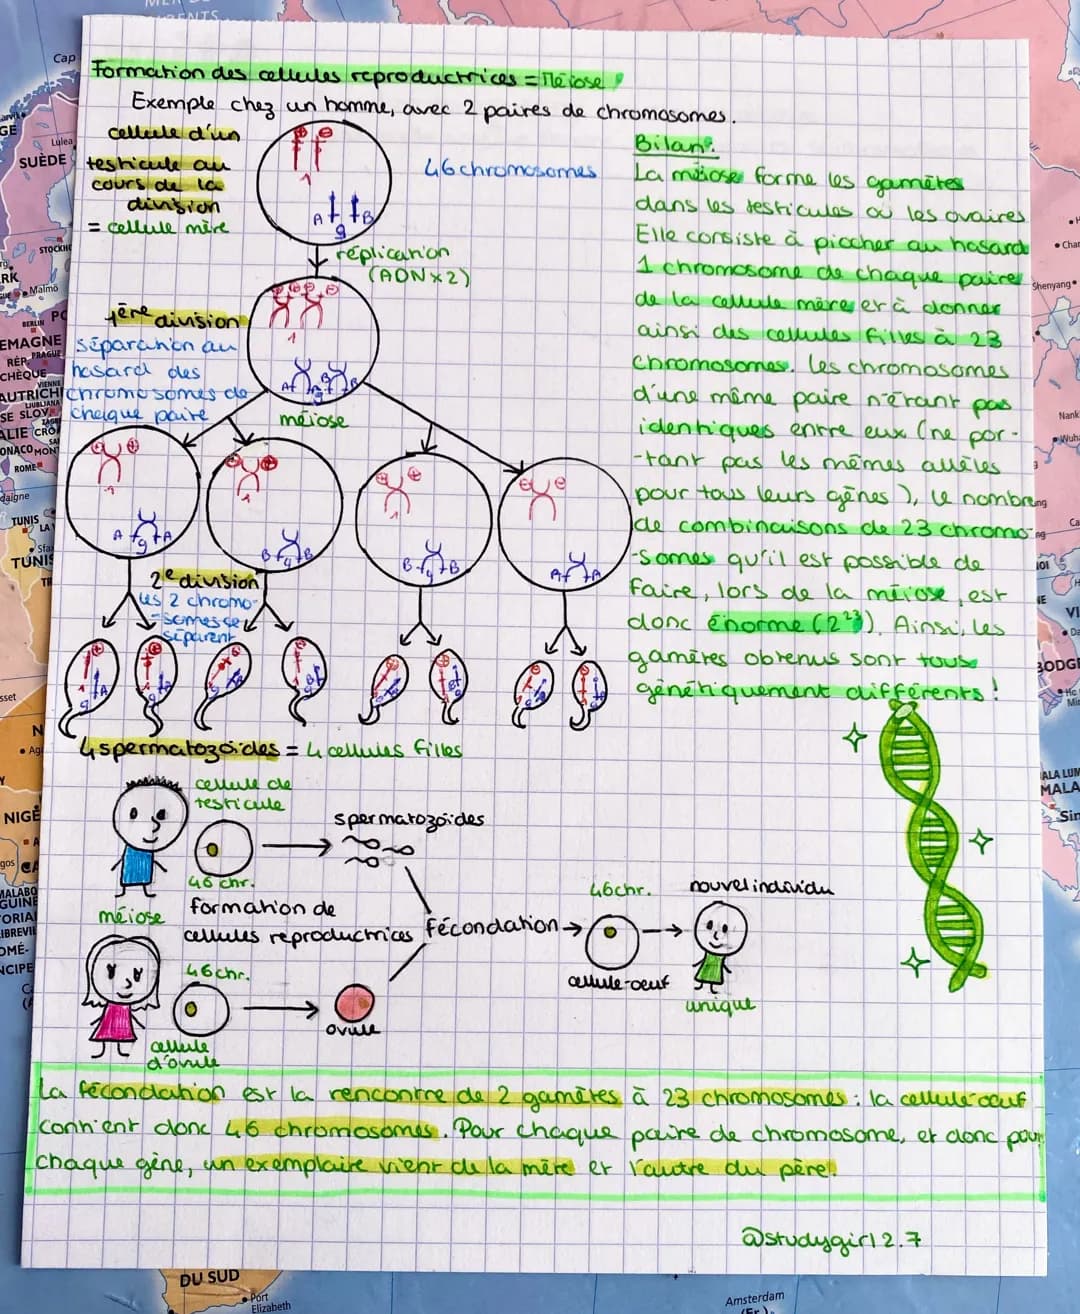 Formation des cellules reproductrices = Méiose
Exemple chez un homme, avec 2 paires de chromosomes.
cellule d'un
testicule au
cours de la
division
= cellule mère
46 chromosomes
A
B
g
réplication
(ADN x 2)
1ère division
séparation au
hasard des
chromosomes de
chaque paire
méiose
A
g
A
B
g
B
B
g
B
A
A
2e division
les 2 chromo-
-somes se
séparent
4 spermatozoïdes = 4 cellules filles
Bilan:
La méiose forme les gamètes
dans les testicules ou les ovaires
Elle consiste à piocher au hasard
1 chromosome de chaque paire
de la cellule mère et à donner
ainsi des cellules filles à 23
chromosomes. Les chromosomes
d'une même paire n'étant pas
identiques entre eux (ne por-
-tant pas les mêmes allèles
pour tous leurs gênes), le nombre
de combinaisons de 23 chromo-
-somes qu'il est possible de
faire, lors de la méiose, est
donc énorme (2²³). Ainsi, les
gamètes obtenus sont tous
génétiquement différents!
cellule de
testicule
46 chr.
spermatozoïdes
méiose
formation de
cellules reproductrices
fécondation
46chr.
nouvel individu
cellule-oeuf
unique
46chr.
cellule
d'ovule
ovule
La fécondation est la rencontre de 2 gamètes à 23 chromosomes : la cellule-oeuf
contient donc 46 chromosomes. Pour chaque paire de chromosome, et donc pour
chaque gêne, un exemplaire vient de la mère et l'autre du père.
@studygirl2.7
Cap
Lulea
SUÈDE
STOCKH
Malmö
BERLIN
PRAGUE
CHÈQUE
VIENNE
LJUBLJANA
ROME
TUNIS
Sfax
TUNIS
MALABO
Shenyang
Nank
Wuh
ALA LUM
MALA
DU SUD
Port
Elizabeth
Amsterdam
(Fr.)